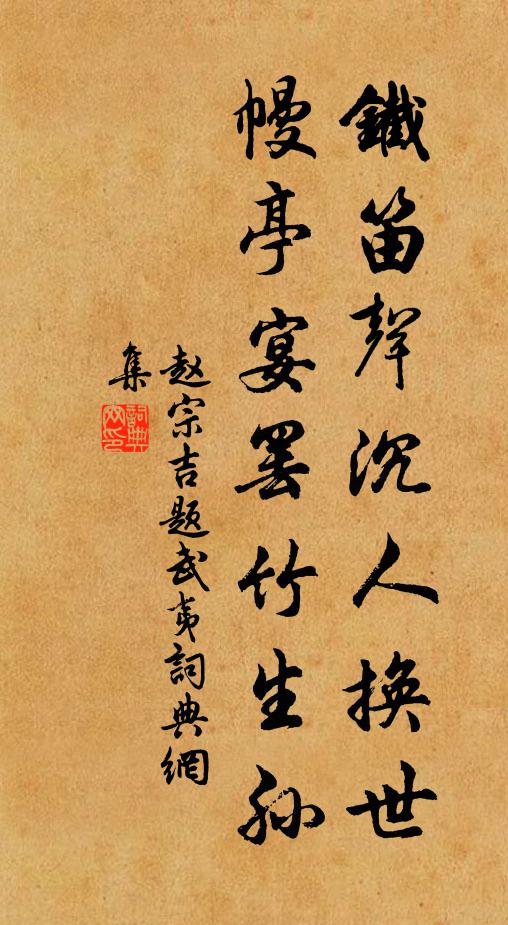 鐵笛聲沉人換世
幔亭宴罷竹生孫
赵宗吉题武夷詞典網
集
詞典
网印